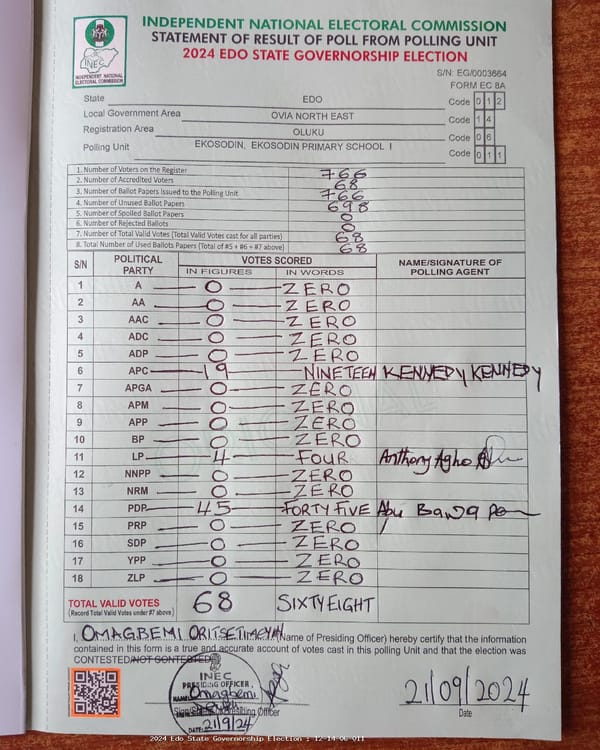 INDEPENDENT NATIONAL ELECTORAL COMMISSION
STATEMENT OF RESULT OF POLL FROM POLLING UNIT
2024 EDO STATE GOVERNORSHIP ELECTION
INEC
INDEPENDENT NATIONAL
ELECTORAL COMMISSION
S/N: EG/0003664
FORM EC 8A
State EDO Code 0 1 2
Local Government Area OVIA NORTH EAST Code 1 4
Registration Area OLUKU Code 0 6
Polling Unit EKOSODIN, EKOSODIN PRIMARY SCHOOL I Code 0 1 1
1. Number of Voters on the Register 766
2. Number of Accredited Voters 68
3. Number of Ballot Papers Issued to the Polling Unit 766
4. Number of Unused Ballot Papers 698
5. Number of Spoiled Ballot Papers 0
6. Number of Rejected Ballots 0
7. Number of Total Valid Votes (Total Valid Votes cast for all parties) 68
8. Total Number of Used Ballots Papers (Total of #5 + #6 + #7 above) 68
S/N POLITICAL PARTY VOTES SCORED NAME/SIGNATURE OF POLLING AGENT
IN FIGURES IN WORDS
1 A 0 ZERO
2 AA 0 ZERO
3 AAC 0 ZERO
4 ADC 0 ZERO
5 ADP 0 ZERO
6 APC 19 NINETEEN KENNEDY KENNEDY
7 APGA 0 ZERO
8 APM 0 ZERO
9 APP 0 ZERO
10 BP 0 ZERO
11 LP 4 FOUR Anthony Agho
12 NNPP 0 ZERO
13 NRM 0 ZERO
14 PDP 45 FORTY FIVE Abu Bawa
15 PRP 0 ZERO
16 SDP 0 ZERO
17 YPP 0 ZERO
18 ZLP 0 ZERO
TOTAL VALID VOTES 68 SIXTY EIGHT
(Record Total Valid Votes under #7 above)
I, OMAGBEMI (Name of Presiding Officer) hereby certify that the information
contained in this form is a true and accurate account of votes cast in this polling Unit and that the election was
CONTESTED/NOT CONTESTED
INEC
PRESIDING OFFICER
NAME: Omagbemi
DATE: 21/9/24
21/09/2024
Date
2024 Edo State Governorship Election : 12-14-06-011